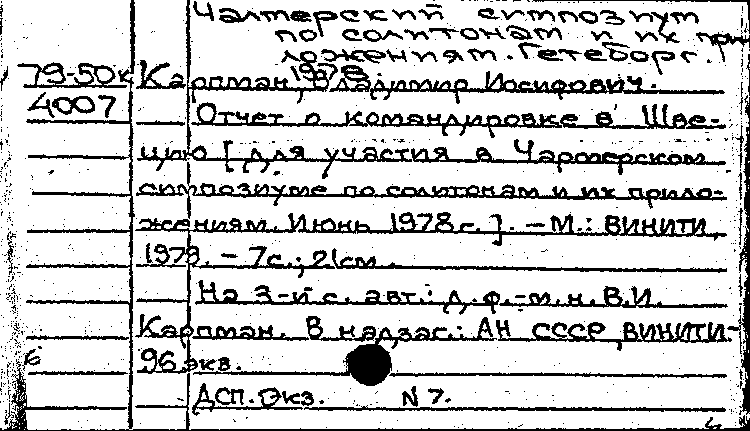 Чалмерский симпозиум
по солитонам и их при
ложениям. Гетеборг.
1978
79-50к Карпман, Владимир Иосифович.
4007 Отчет о командировке в Шве-
цию [для участия в Чармерском
симпозиуме по солитонам и их прило-
жениям. Июнь 1978 г.]. - М.: ВИНИТИ,
1979. - 7с.; 21см.
На 3-й с. авт.: д.ф.-м.н. В.И.
Карпман. В надзаг.: АН СССР, ВИНИТИ.-
96 экз.
ДСП. Экз. N 7.